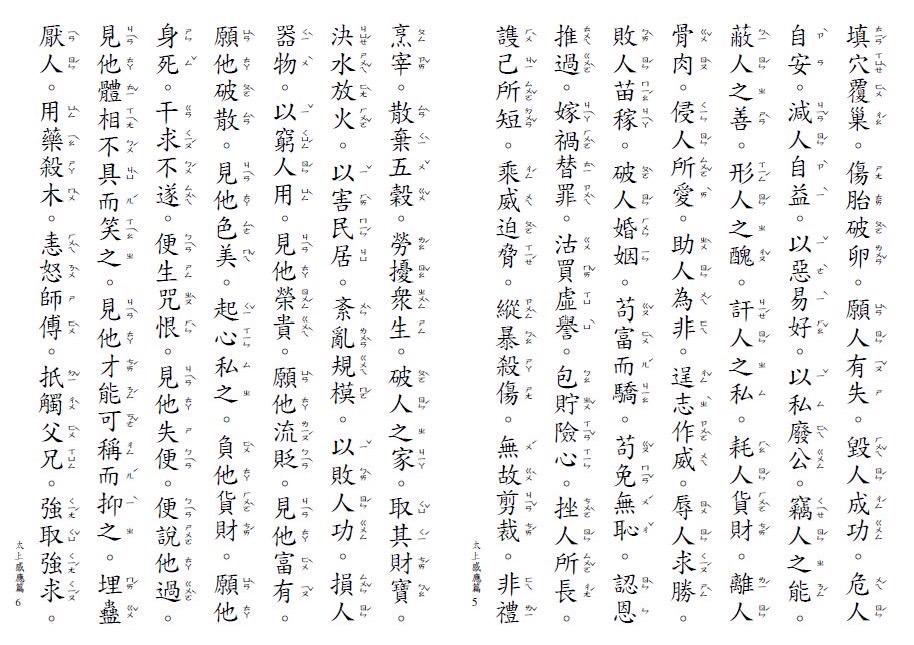 填穴覆巢。傷胎破卵。願人有失。毀人成功。危人
自安。減人自益。以惡易好。以私廢公。竊人之能。
蔽人之善。形人之醜。訐人之私。耗人貨財。離人
骨肉。侵人所愛。助人為非。逞志作威。辱人求勝。
敗人苗稼。破人婚姻。苟富而驕。苟免無恥。認恩
推過。嫁禍替罪。沽買虛譽。包貯險心。挫人所長。
護己所短。乘威迫脅。縱暴殺傷。無故剪裁。非禮
太上感應篇 5
烹宰。散棄五穀。勞擾眾生。破人之家。取其財寶。
決水放火。以害民居。紊亂規模。以敗人功。損人
器物。以窮人用。見他榮貴。願他流貶。見他富有。
願他破散。見他色美。起心私之。負他貨財。願他
身死。干求不遂。便生咒恨。見他失便。便說他過。
見他體相不具而笑之。見他才能可稱而抑之。埋蠱
厭人。用藥殺木。恚怒師傅。抵觸父兄。強取強求。
太上感應篇 6